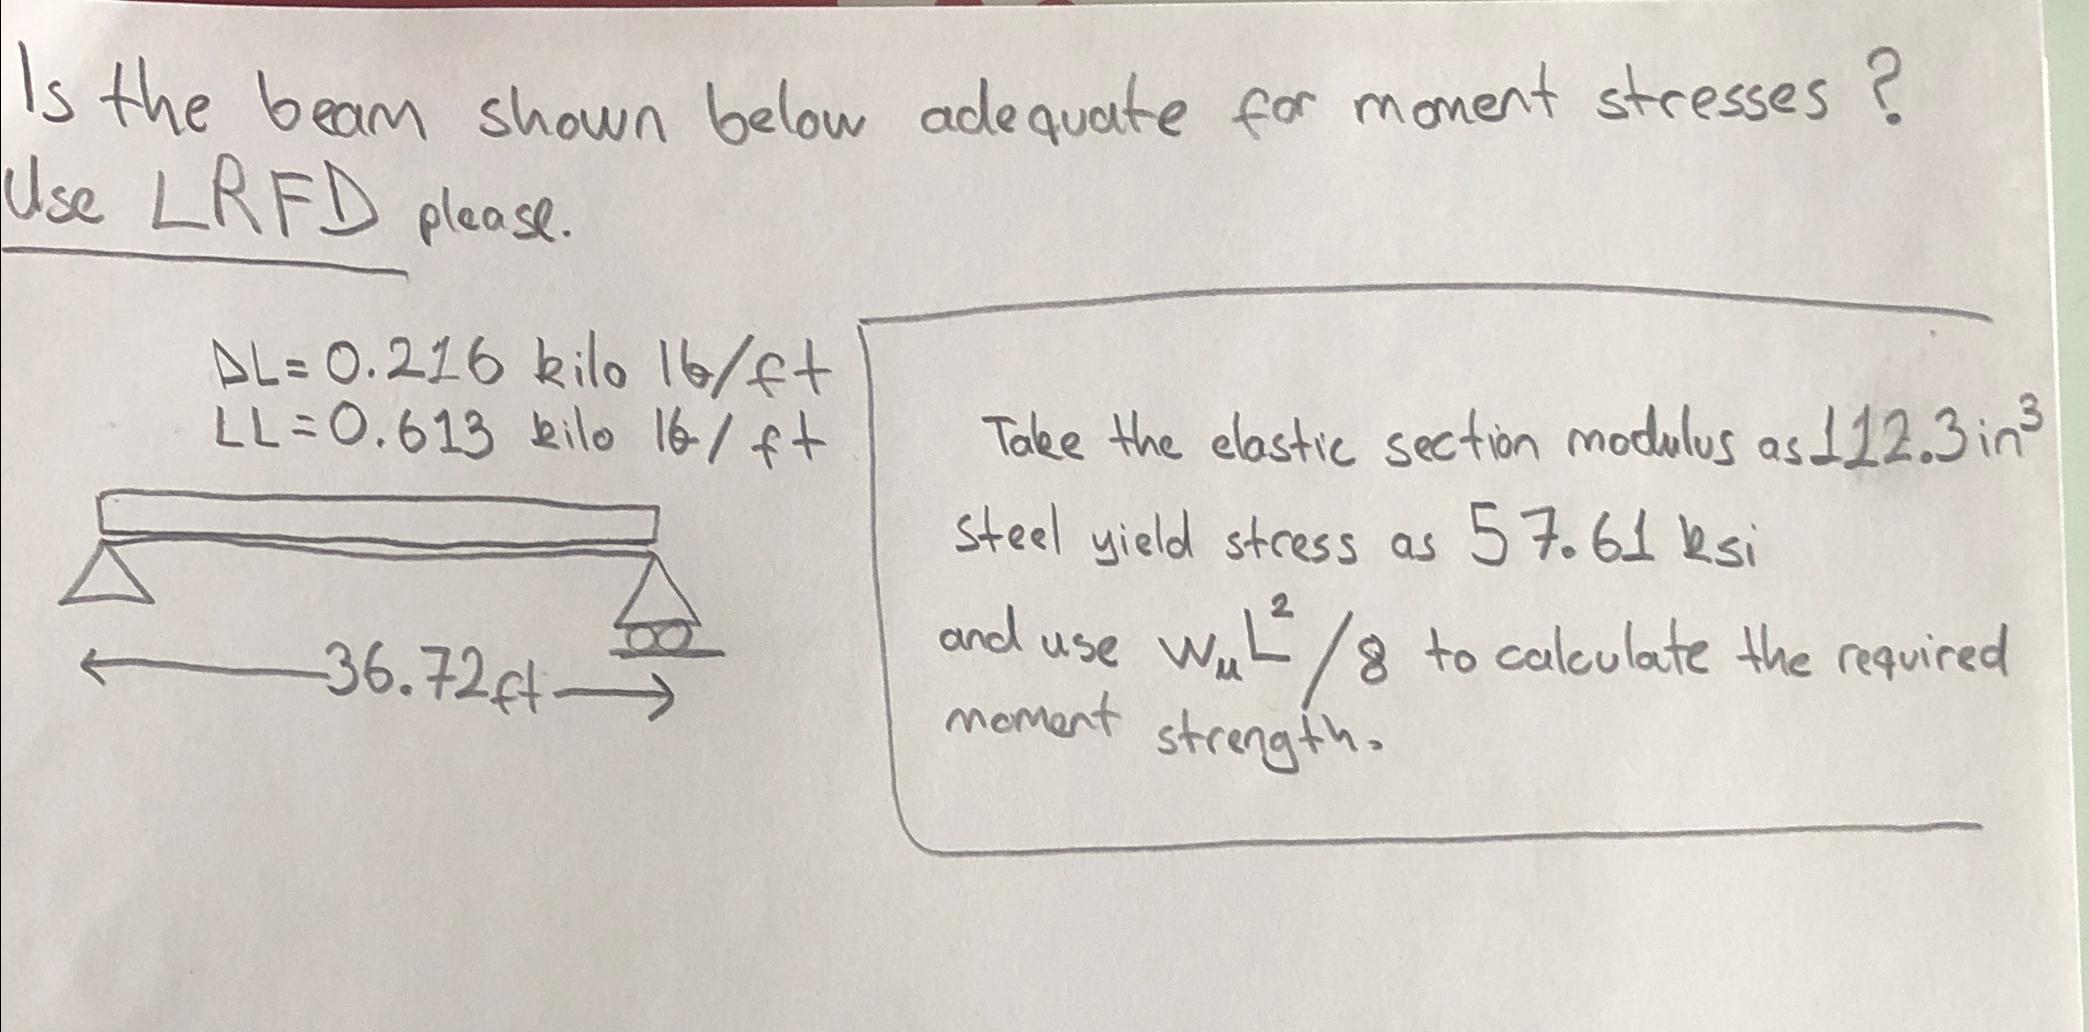 Is the beam shown below adequate for moment stresses?
Use LRFD please.
DL=0.216 kilo lb/ft
LL=0.613 kilo lb/ft
36.72ft
Take the elastic section modulus as 112.3in³
steel yield stress as 57.61 ksi
and use wᵤL²/8 to calculate the required
moment strength.